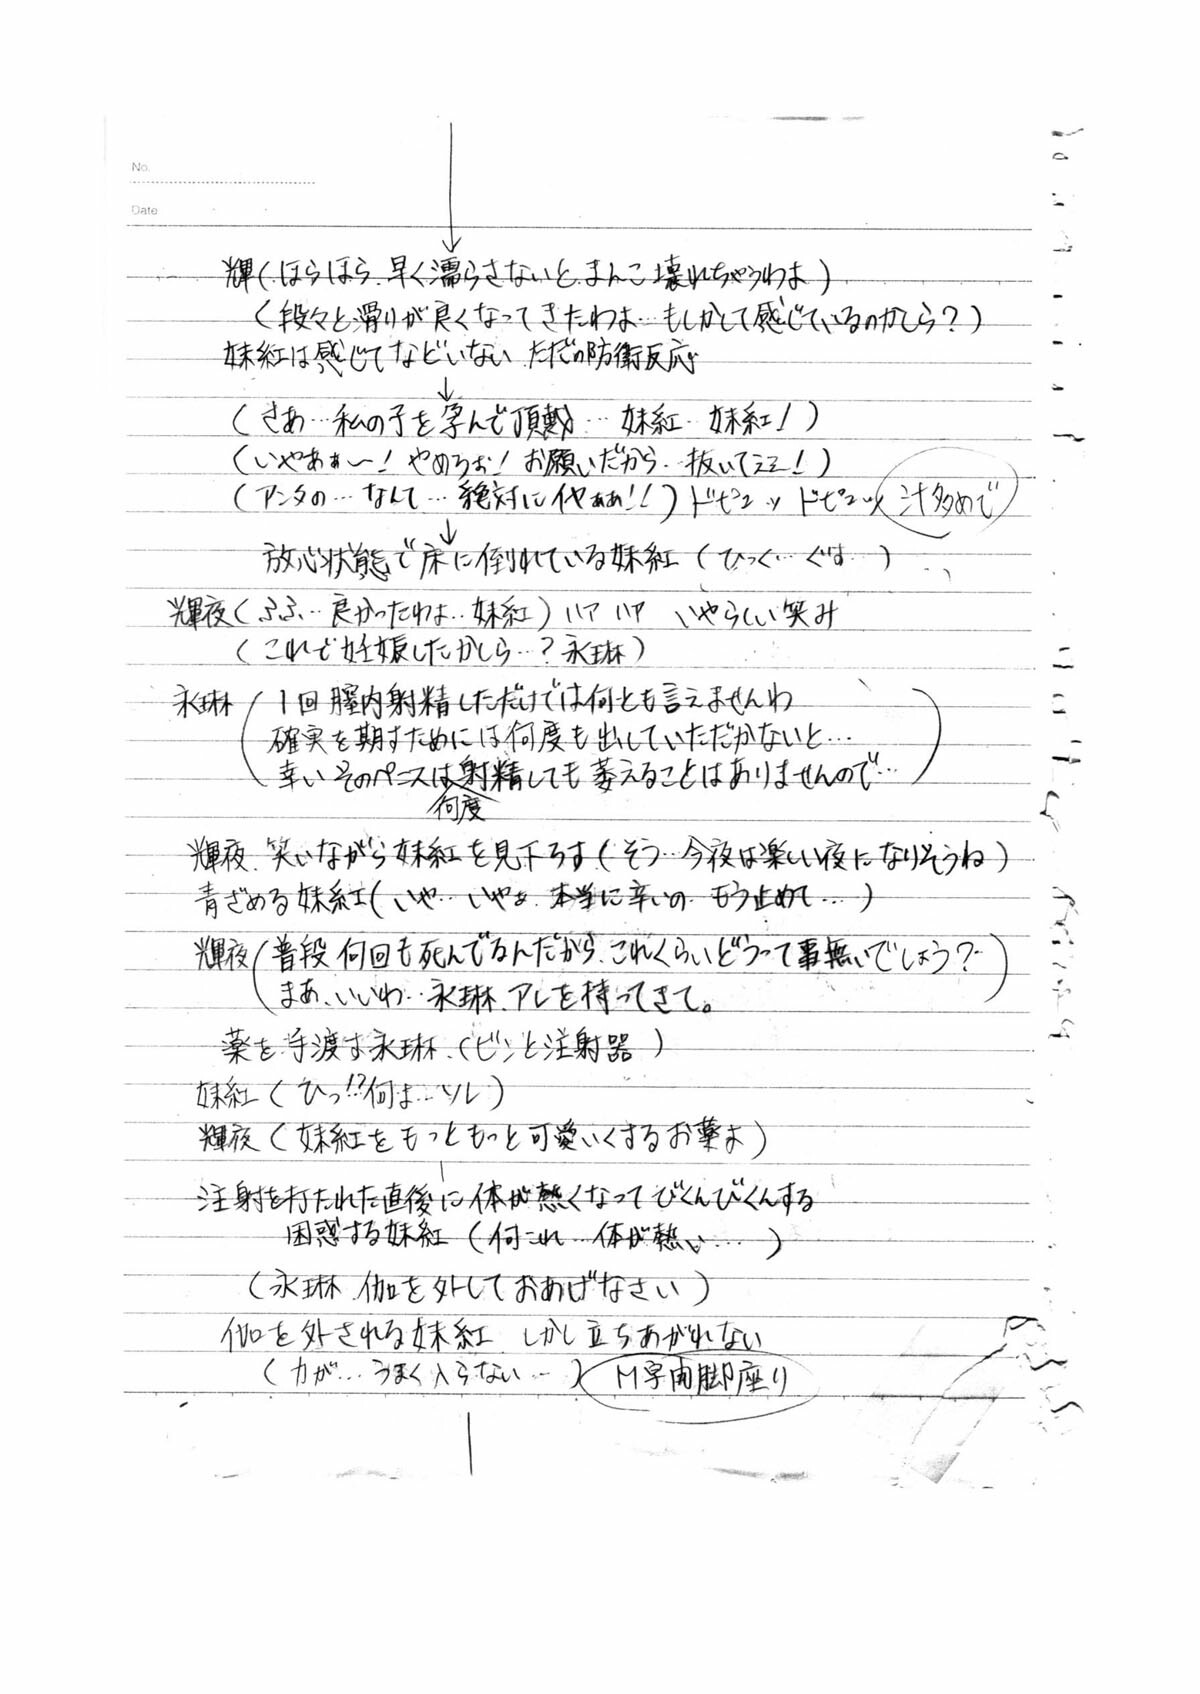 No.
Date
輝(ほらほら、早く濡らさないと、まんこ壊れちゃうわよ)
(段々と滑りが良くなってきたわよ…もしかして感じているのかしら?)
妹紅は感じてなどいない ただの防衛反応
(さあ…私の子を孕んで頂戴…妹紅…妹紅!)
(いやあぁ〜!やめろぉ!お願いだから…抜いてえェ!)
(アンタの…なんて…絶対にイヤぁあ!!)ドピュッ ドピュッ 汁多めで
放心状態で床に倒れている妹紅(ひっく…ぐす…)
輝夜(ふふ…良かったわよ…妹紅)ハァ ハァ いやらしい笑み
(これで妊娠したかしら…?永琳)
永琳(1回膣内射精しただけでは何とも言えませんわ
確実を期すためには何度も出していただかないと…
幸いそのペニスは何度射精しても萎えることはありませんので…)
輝夜、笑いながら妹紅を見下ろす(そう…今夜は楽しい夜になりそうね)
青ざめる妹紅(いや…いやぁ、本当に辛いの、もう止めて…)
輝夜(普段何回も死んでるんだから、これくらいどうって事無いでしょう?
まあ、いいわ…永琳、アレを持ってきて。)
薬を手渡す永琳(ビンと注射器)
妹紅(ひっ!?何よ…ソレ)
輝夜(妹紅をもっともっと可愛いくするお薬よ)
注射を打たれた直後に体が熱くなってびくんびくんする
困惑する妹紅(何これ…体が熱い…)
(永琳、伽を外しておあげなさい)
伽を外される妹紅、しかし立ちあがれない
(力が…うまく入らない…)M字開脚座り